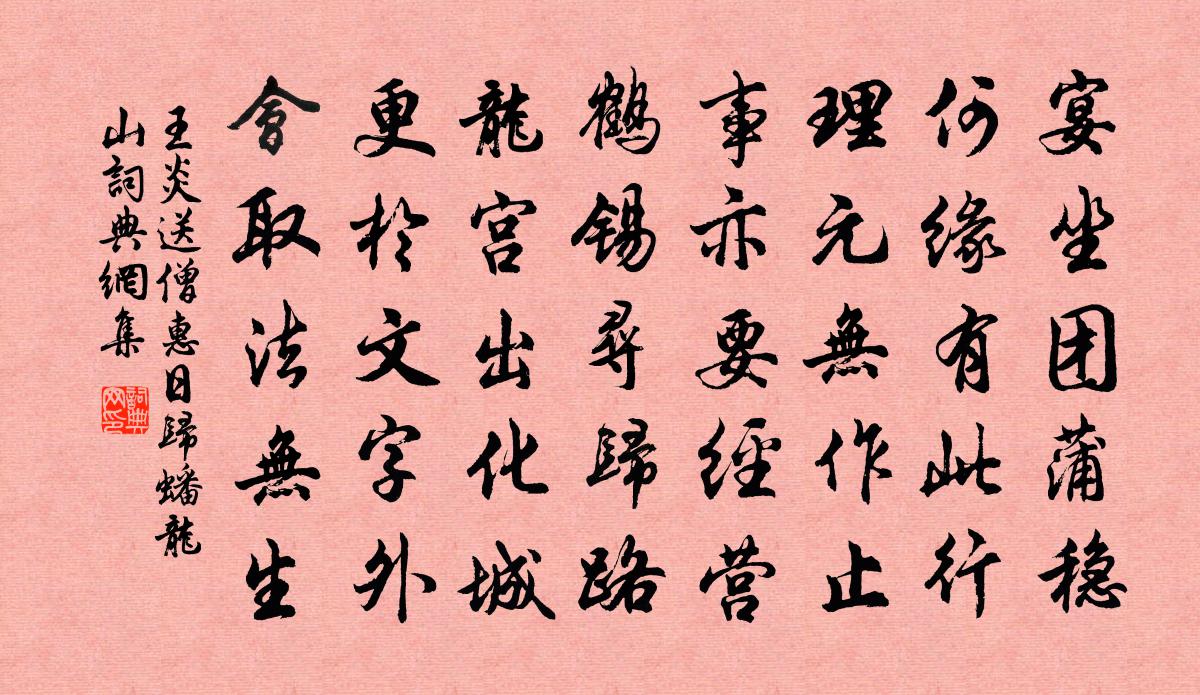 宴坐团蒲穏
何缘有此行
理元無作止
事亦要經营
鶴锡尋歸路
龍宫出化城
更於文字外
會取法無生
王炎送僧惠日歸蟠龍
山詞典網集
詞典
网印